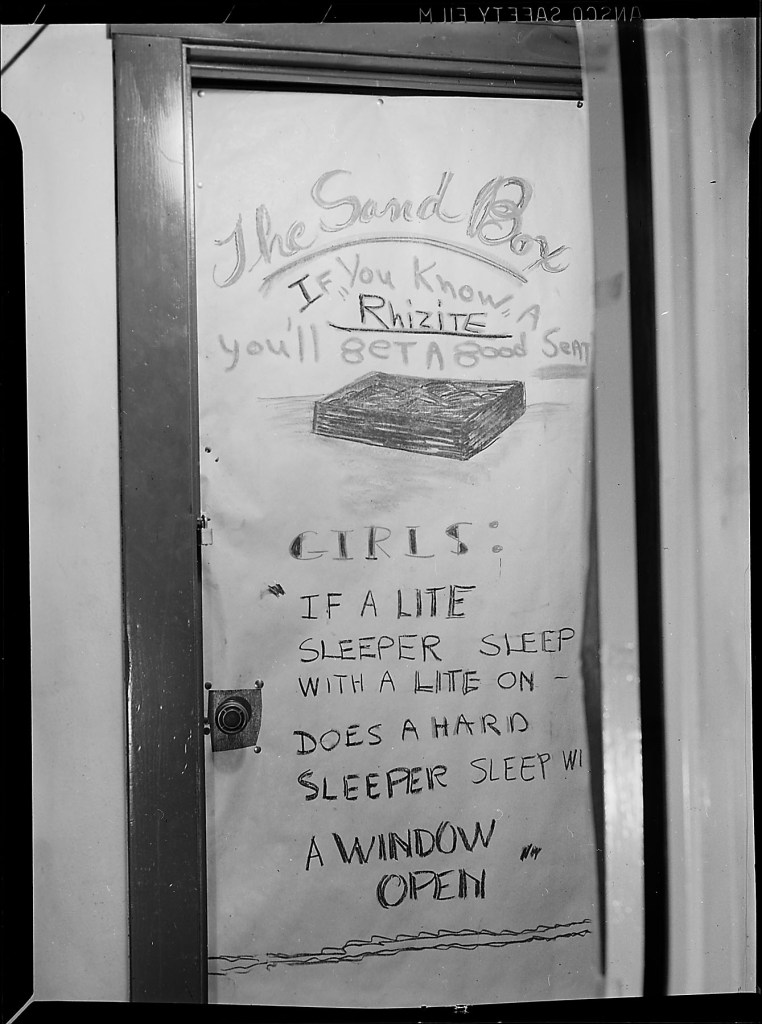 ANSCO SAFETY FILM
The Sand Box
IF You Know "A
Rhizite"
you'll GET A good SEAT
GIRLS:
"IF A LITE
SLEEPER SLEEP
WITH A LITE ON -
DOES A HARD
SLEEPER SLEEP WI
A WINDOW
OPEN"